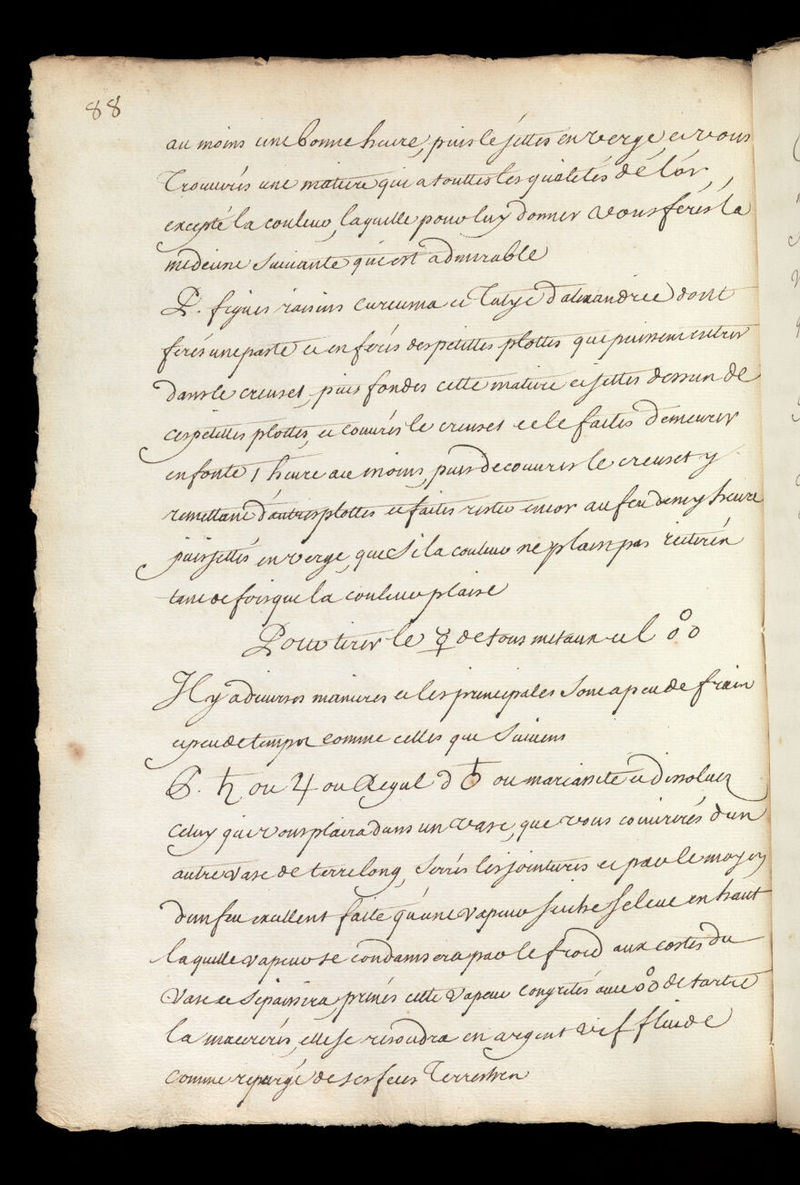 88
au moins une bonne heure, puis le jettes en verge, et vous
trouverés une matiere qui a touttes les qualités de l'or
excepté la couleur, laquelle pour luy donner vous ferés la
medecine suivante qui est admirable
P. figues raisins curcuma et d'alexandrie dont
ferés une paste et en ferés des petittes plottes qui puissent entrer
dans le creuset, puis fondes cette matiere et jettes dessus de
ces petittes plottes, et couvrés le creuset et le faites demeurer
en fonte 1 heure au moins, puis decouvrir le creuset y
remettant d'autres plottes et faites rester encor au feu demy heure
puis jettés en verge, que si la couleur ne plais pas reiteren
tant de fois que la couleur plaise
Pour tirer le ☿ de tous metaux et l
Il y a diverses manieres et les principales sont a peu de frain
et peu de temps comme celles qui suivens
P. ♄ ou ♃ ou Regul d ♁ ou marcasite et dissolues
celuy qui vous plaira dans un vase, que vous couvrirés d'un
autre vase de terre long, serrés les jointures et par le moyen
d'un feu exellent faite qu'une vapeur seiche s'eleve en haut
laquelle vapeur se condansera par le froid aux costes du
vase et s'epaissira, prenés cette vapeur avec de tartre
la macererés, elle se resoudra en argent vif fluide
comme repurgé de ses feces Terrestren